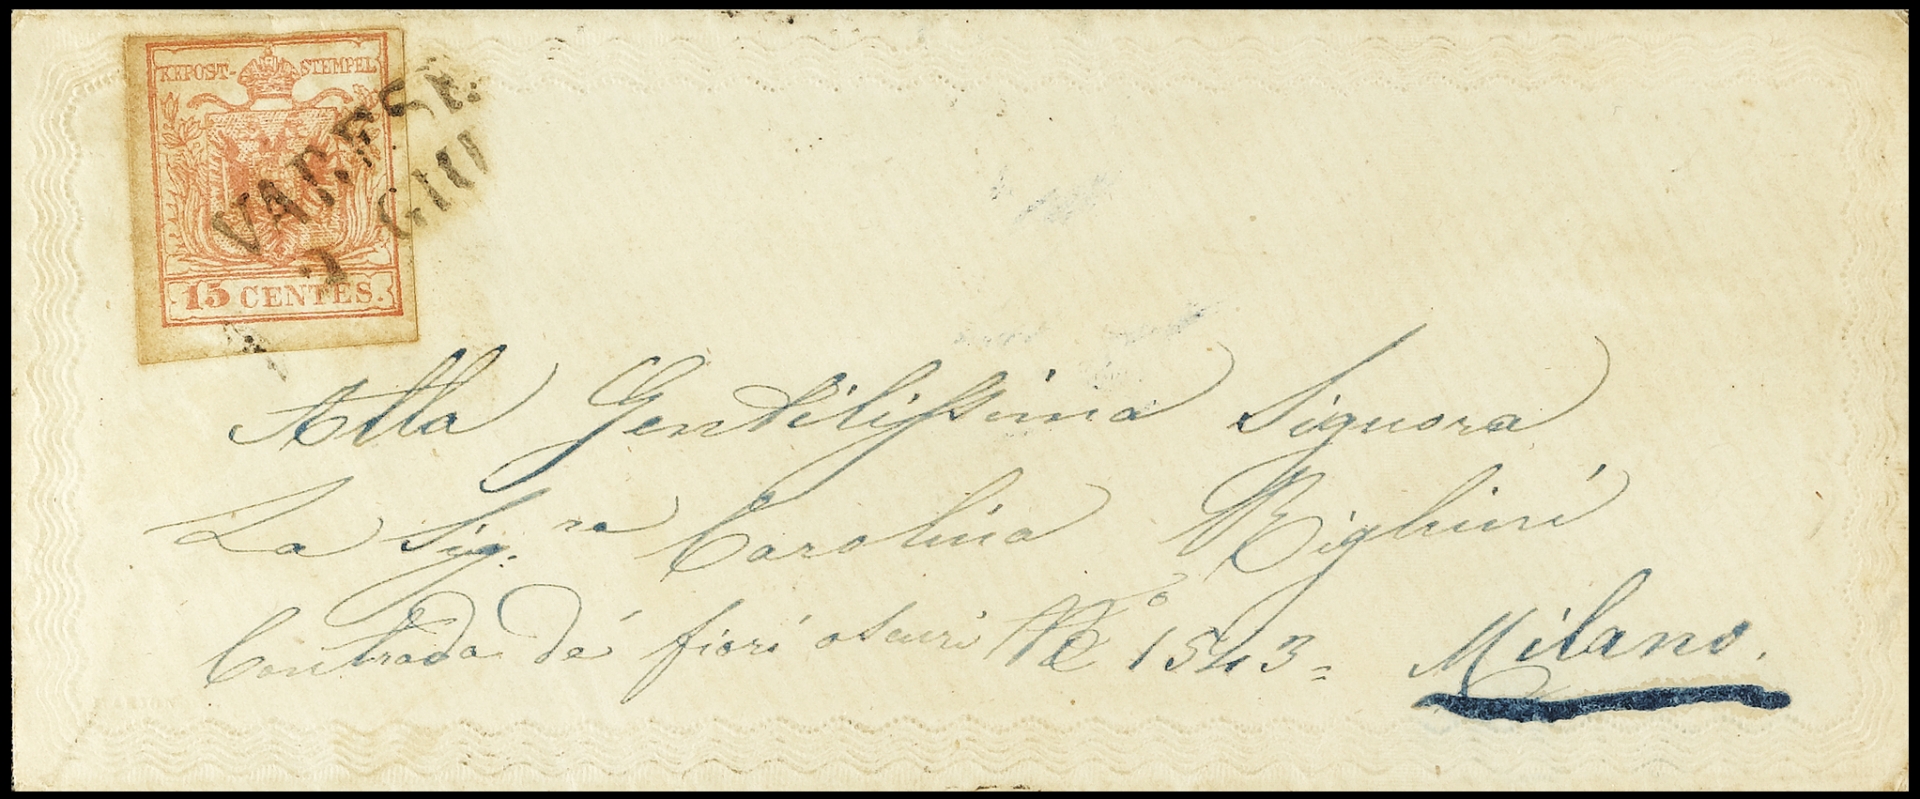 KKPOST-STEMPEL
15 CENTES.
VARESE
2 GIU
Alla Gentilissima Signora
La Sig.ra Carolina Righini
Contrada dé fiori oscuri No 1543=
Milano.
MARION